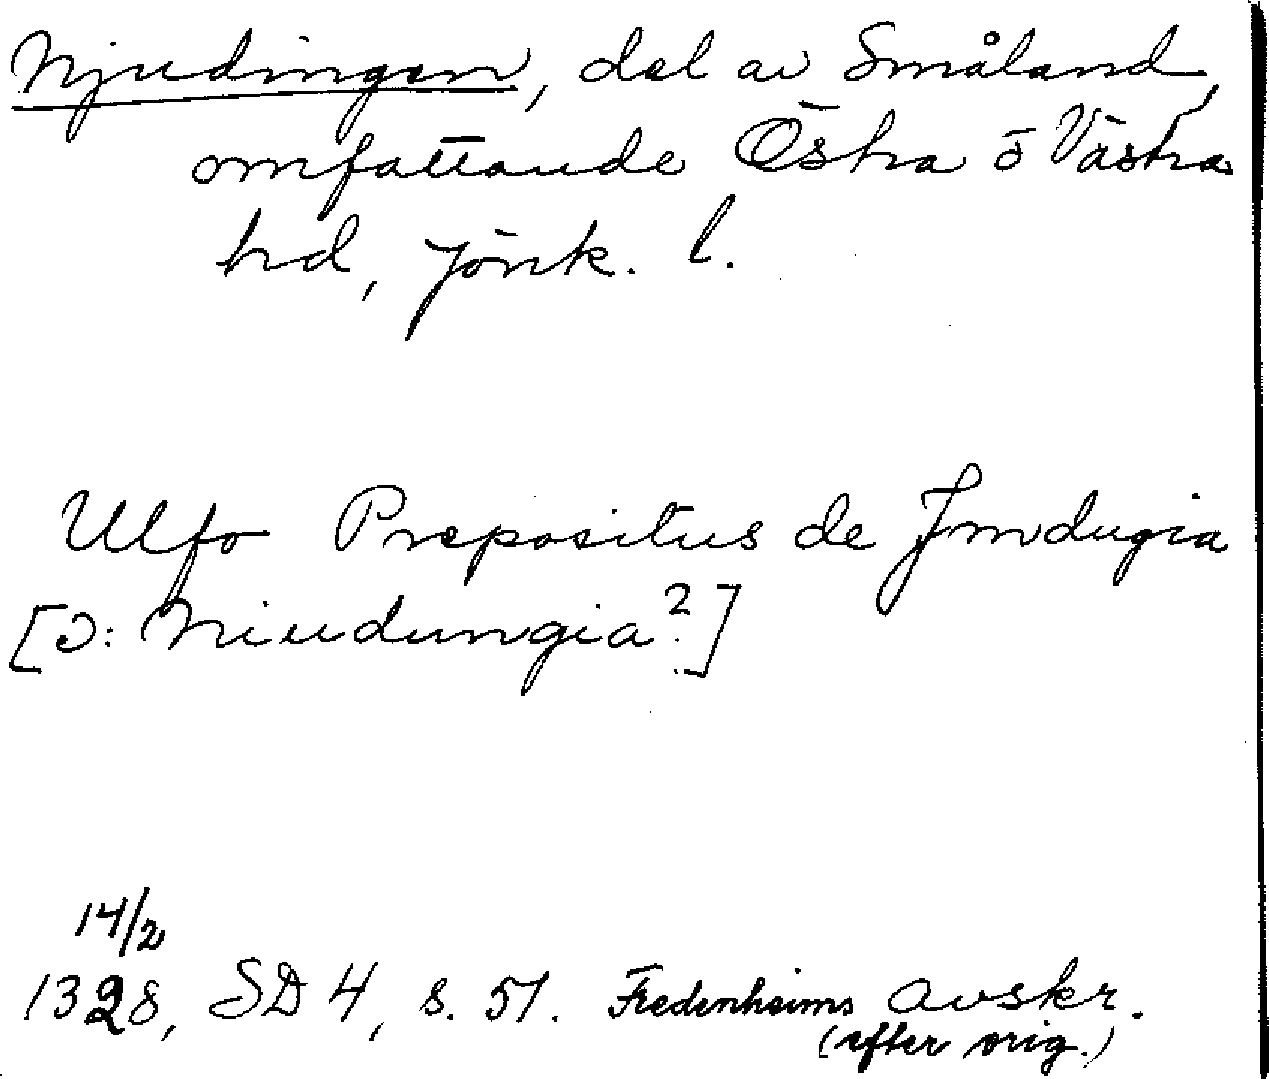 Njudingen, del av Småland,
omfattande Östra o Västra
hd, Jönk. l.
Ulfo Prepositus de Jmdugia
[ɔ: Niudungia?]
14/2
1328, SD 4, s. 51. Fredenheims avskr.
(efter orig.)